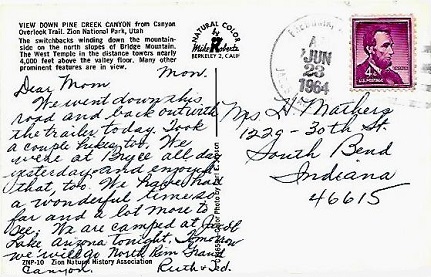 VIEW DOWN PINE CREEK CANYON from Canyon
Overlook Trail. Zion National Park, Utah
The switchbacks winding down the mountain-
side on the north slopes of Bridge Mountain.
The West Temple in the distance towers nearly
4,000 feet above the valley floor. Many other
prominent features are in view.
NATURAL COLOR
by
Mike Roberts
BERKELEY 2, CALIF
JUN
23
1964
4¢
U.S. POSTAGE
LINCOLN
Mon.
Dear Mom
We went down this
road and back out with
the trailer today. Took
a couple hikes too. We
were at Bryce all day
yesterday and enjoyed
that, too. We have had
a wonderful time so
far and a lot more to
see. We are camped at Jacob
Lake Arizona tonight. Tomorrow
we will go North Rim Grand
Canyon.
Ruth & Ted.
Mrs H. Mathers
1229 - 30th St.
South Bend
Indiana
46615
ZNP-10 Zion Natural History Association